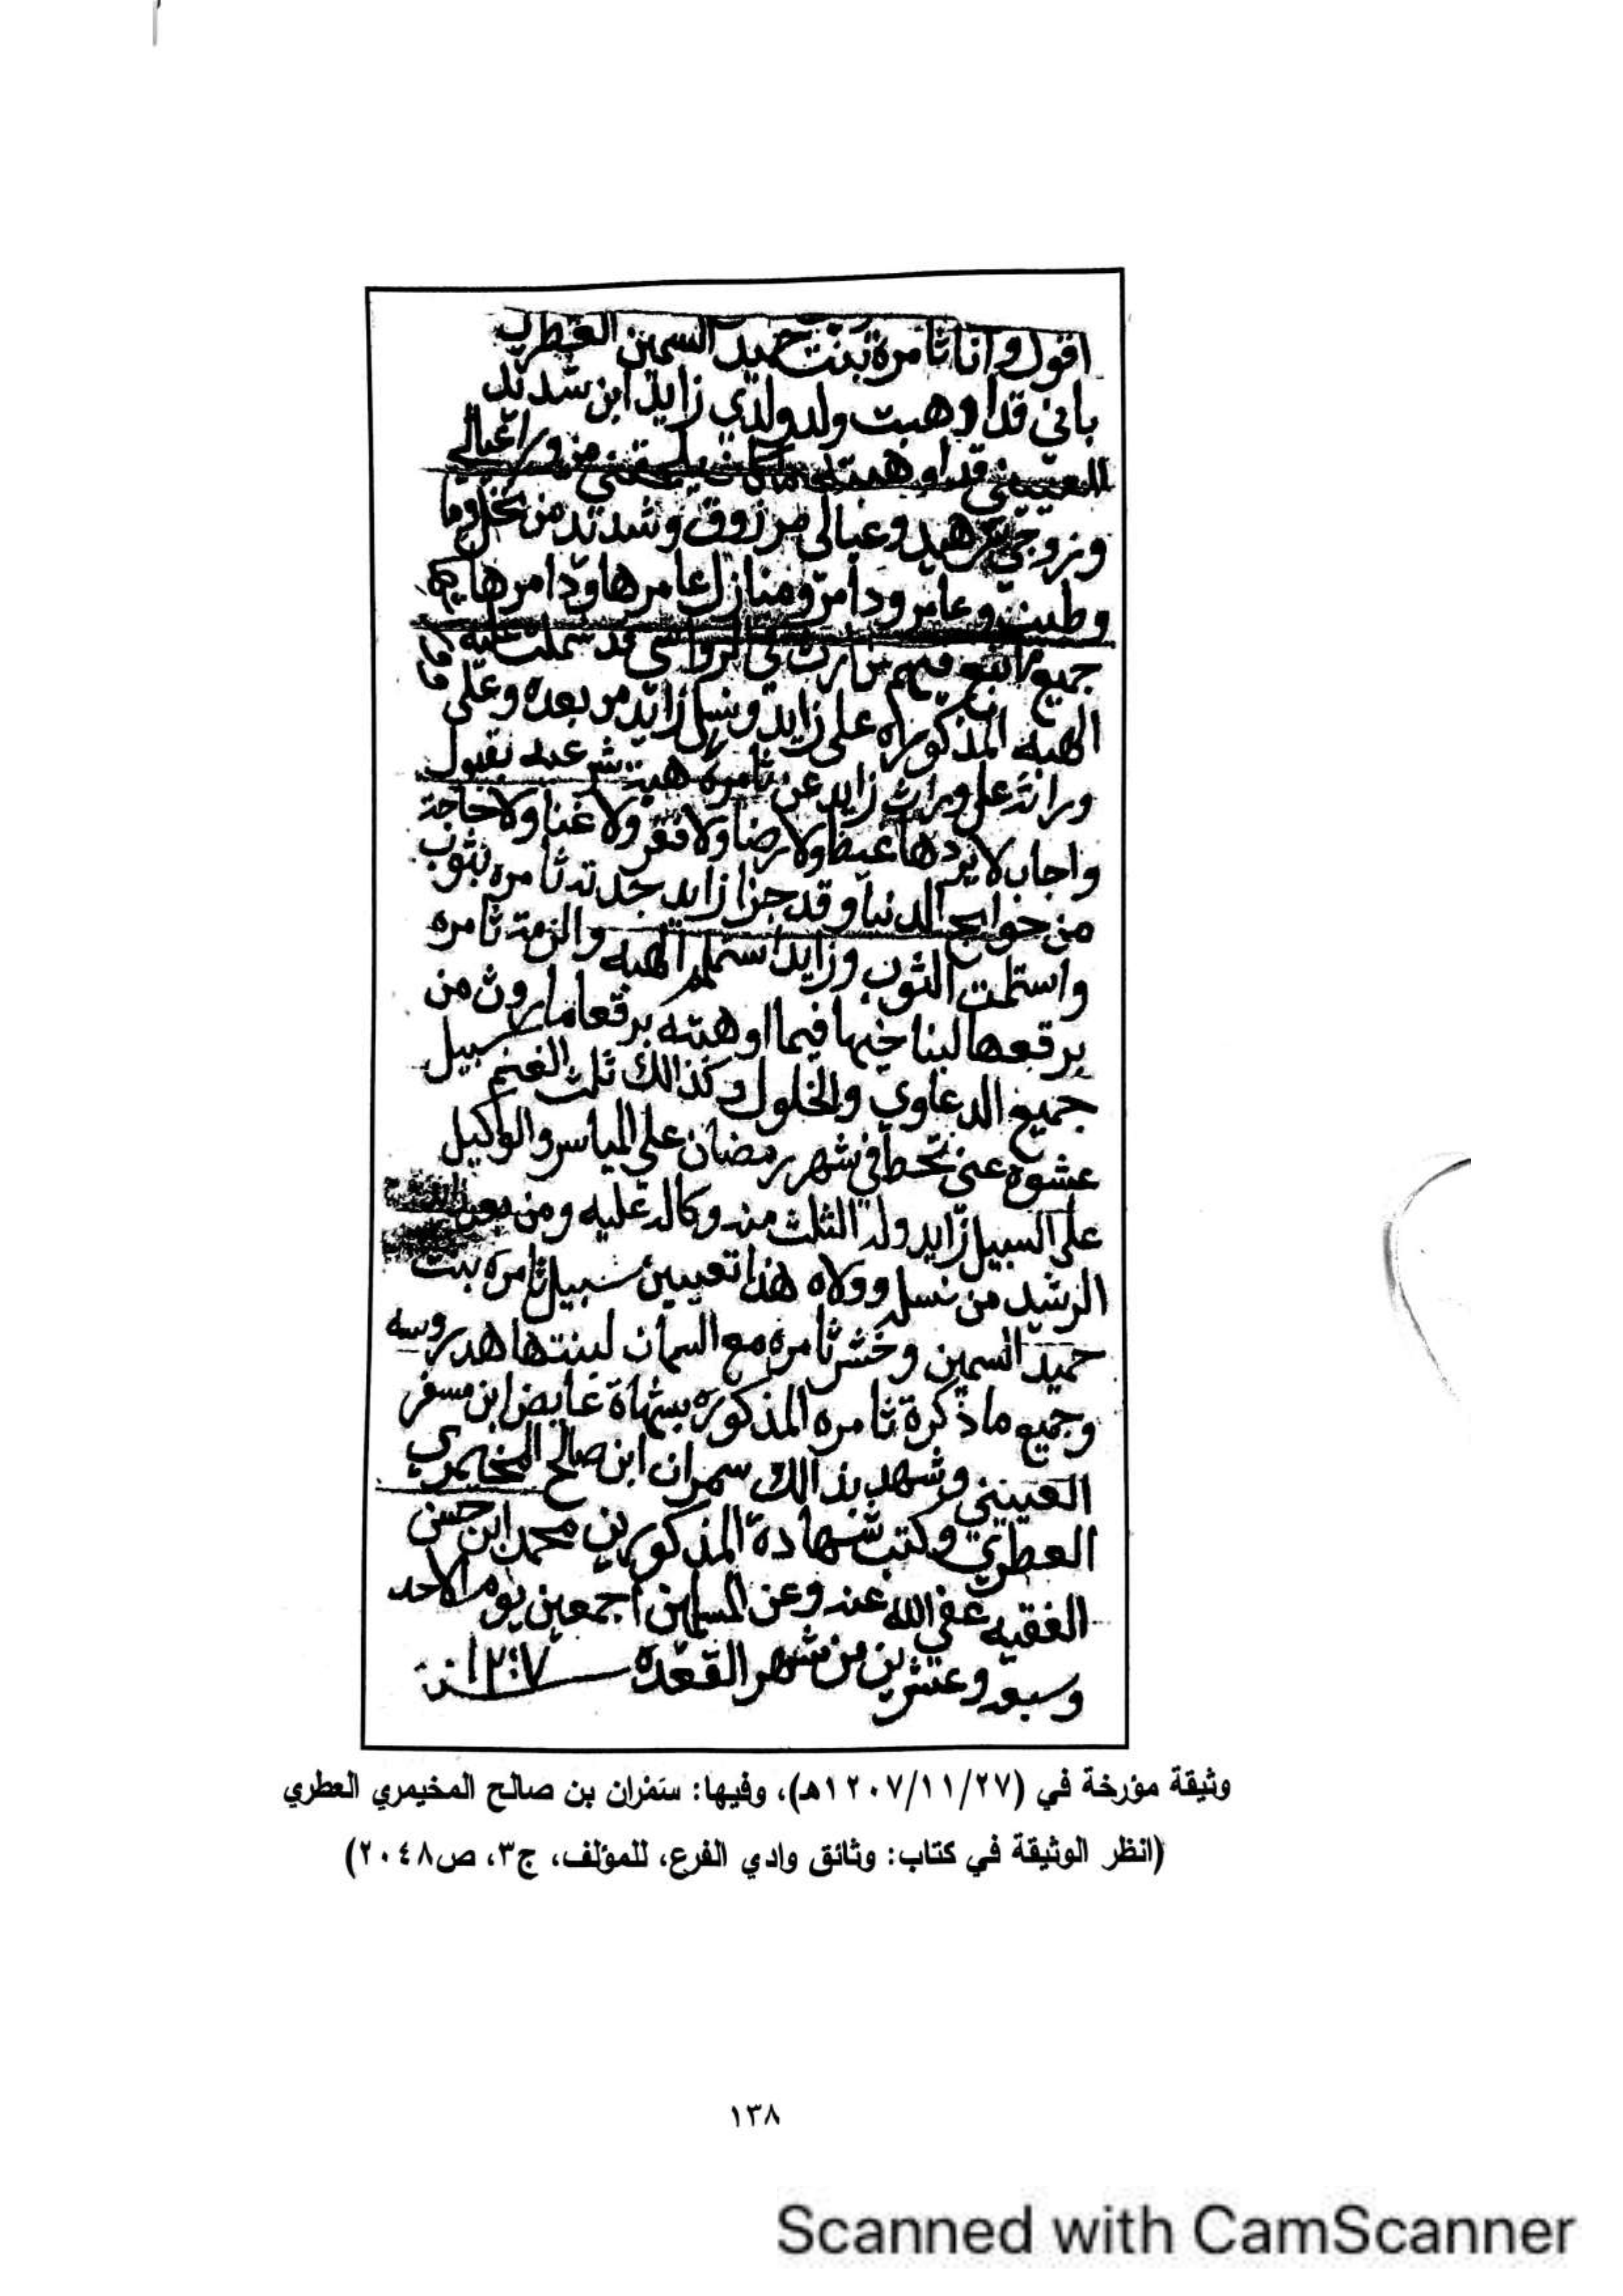 اقول وانا ثامرة بنت حميد السمين العطري
باني قد اوهبت ولد ولدي زايد ابن شديد
العييني قد اوهبته ما كان يلحقني من ورا عيالي
وزوجي وعيالي مرزوق وشديد من نخل وما
وطين وعامر ودامر ومنازل عامرها ودامرها
جميع قد شملت عليه
الهبه المذكوره على زايد ونسل زايد من بعده وعلى ما
وراثة على وراث زايد عن ثامره هبة شرعيه بقبول
واجاب لا يردها غيظ ولا رضا ولا فقر ولا غنا ولا حاجة
من حوايج الدنيا وقد جزا زايد جدته ثامره بثوب
واستلمت الثوب وزايد استلم الهبه والزمة ثامره
برقعها لبنا خيها فيما اوهبته برقعا مارون من
جميع الدعاوي والخلول وكذالك ثلث الغنم سبيل
عشوه عني تحط في شهر رمضان على المياسر والوكيل
على السبيل زايد وله الثلث منه وكاله عليه ومن بعد
الرشيد من نسله وولاه هذا تعيين سبيل ثامره بنت
حميد السمين وخشر ثامره مع السمان لبنتها هدروسه
وجميع ماذكرة ثامره المذكوره بشهاة عايض ابن مسفر
العييني وشهد بذالك سمران ابن صالح المخيمري
العطري وكتب شهادة المذكورين محمد ابن حسن
الفقيه عفي الله عنه وعن المسلمين اجمعين يوم الاحد
وسبعه وعشرين من شهر القعده سنة ١٢٠٧
وثيقة مؤرخة في (١٢٠٧/١١/٢٧هـ)، وفيها: سَمْران بن صالح المخيمري العطري
(انظر الوثيقة في كتاب: وثائق وادي الفرع، للمؤلف، ج٣، ص٢٠٤٨)
١٣٨
Scanned with CamScanner